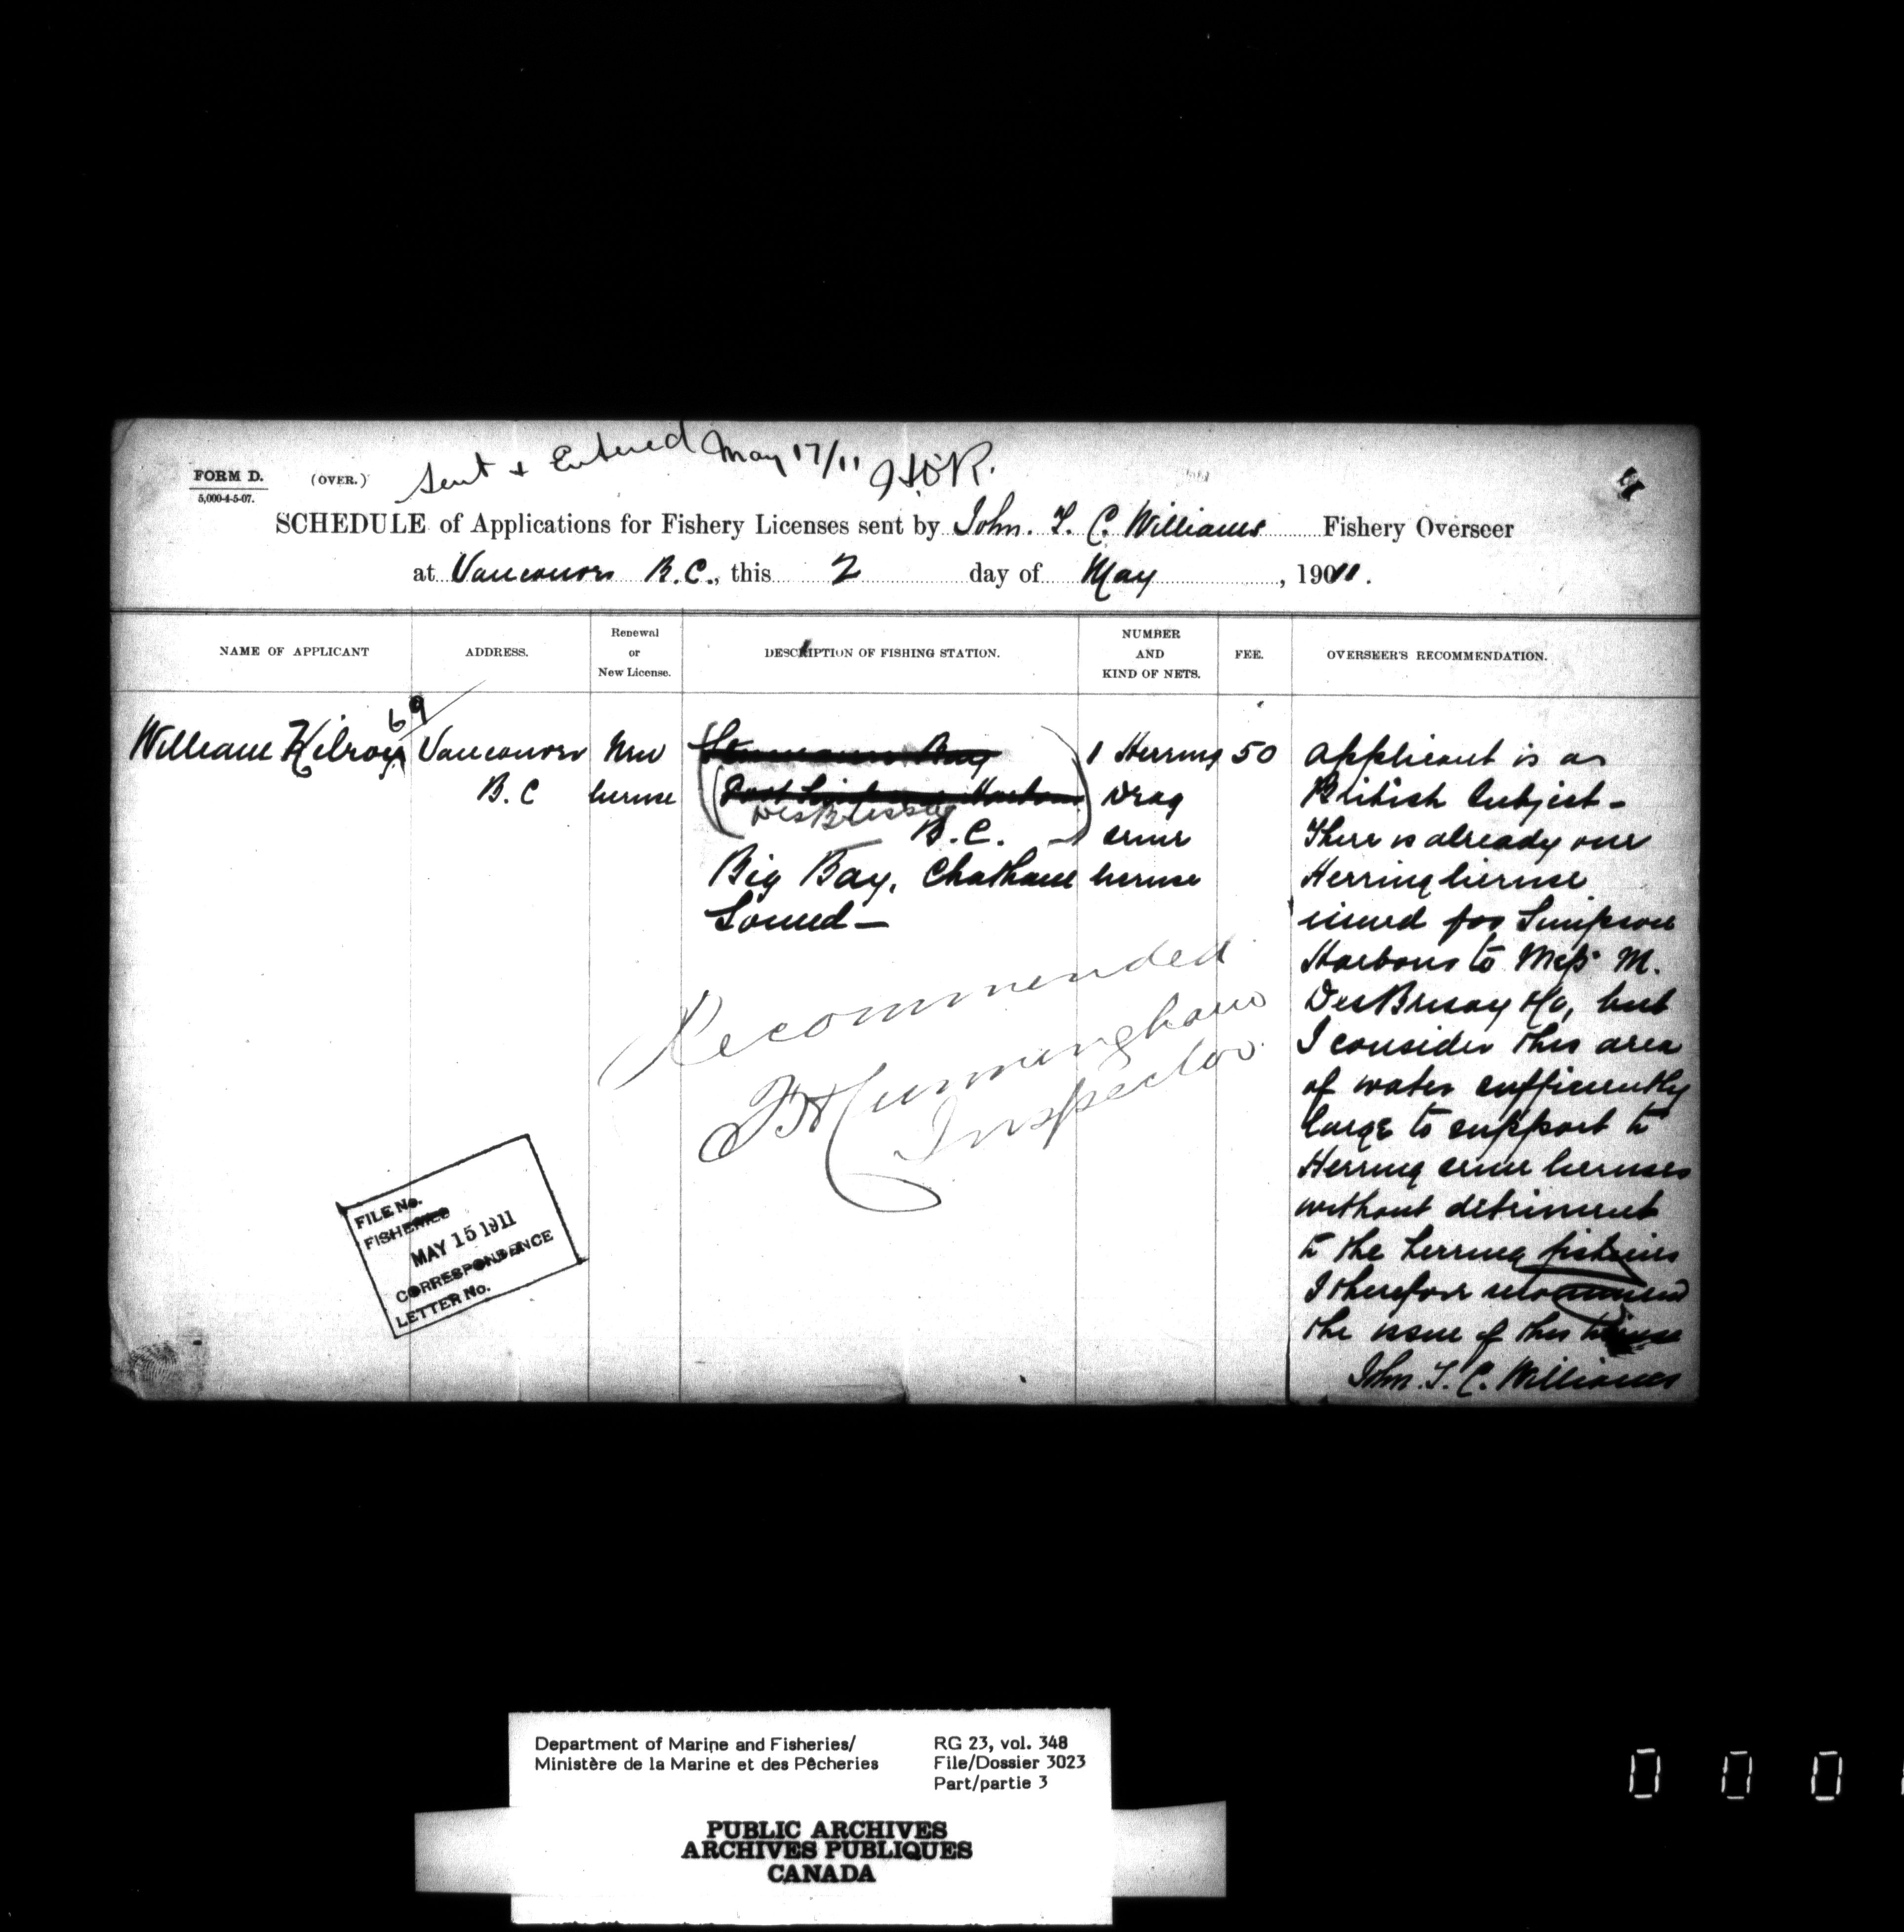 Sent + Entered May 17/11 H.O.R.
FORM D. (OVER.)
5,000-4-5-07.
SCHEDULE of Applications for Fishery Licenses sent by John. T. C. Williams Fishery Overseer
at Vancouver B.C., this 2 day of May, 1911.
NAME OF APPLICANT
ADDRESS.
Renewal
or
New License.
DESCRIPTION OF FISHING STATION.
NUMBER
AND
KIND OF NETS.
FEE.
OVERSEER'S RECOMMENDATION.
69
William Kilroy
Vancouver
B.C
New
license
Bay
Port Simpson Harbour
DesBrissay
B.C.
Big Bay, Chatham
Sound—
1 Herring
Drag
seine
license
50
Applicant is as
British Subject—
There is already one
Herring license
issued for Simpson
Harbour to Mess M.
DesBrisay & Co, but
I consider this area
of water sufficiently
large to support to
Herring seine licenses
without detriment
to the herring fisheries
I therefore recommend
the issue of this license
John. T. C. Williams
Recommended
F H Cunningham
Inspector
FILE No.
FISHERIES
MAY 15 1911
CORRESPONDENCE
LETTER No.
Department of Marine and Fisheries/
Ministère de la Marine et des Pêcheries
RG 23, vol. 348
File/Dossier 3023
Part/partie 3
PUBLIC ARCHIVES
ARCHIVES PUBLIQUES
CANADA
0 0 0